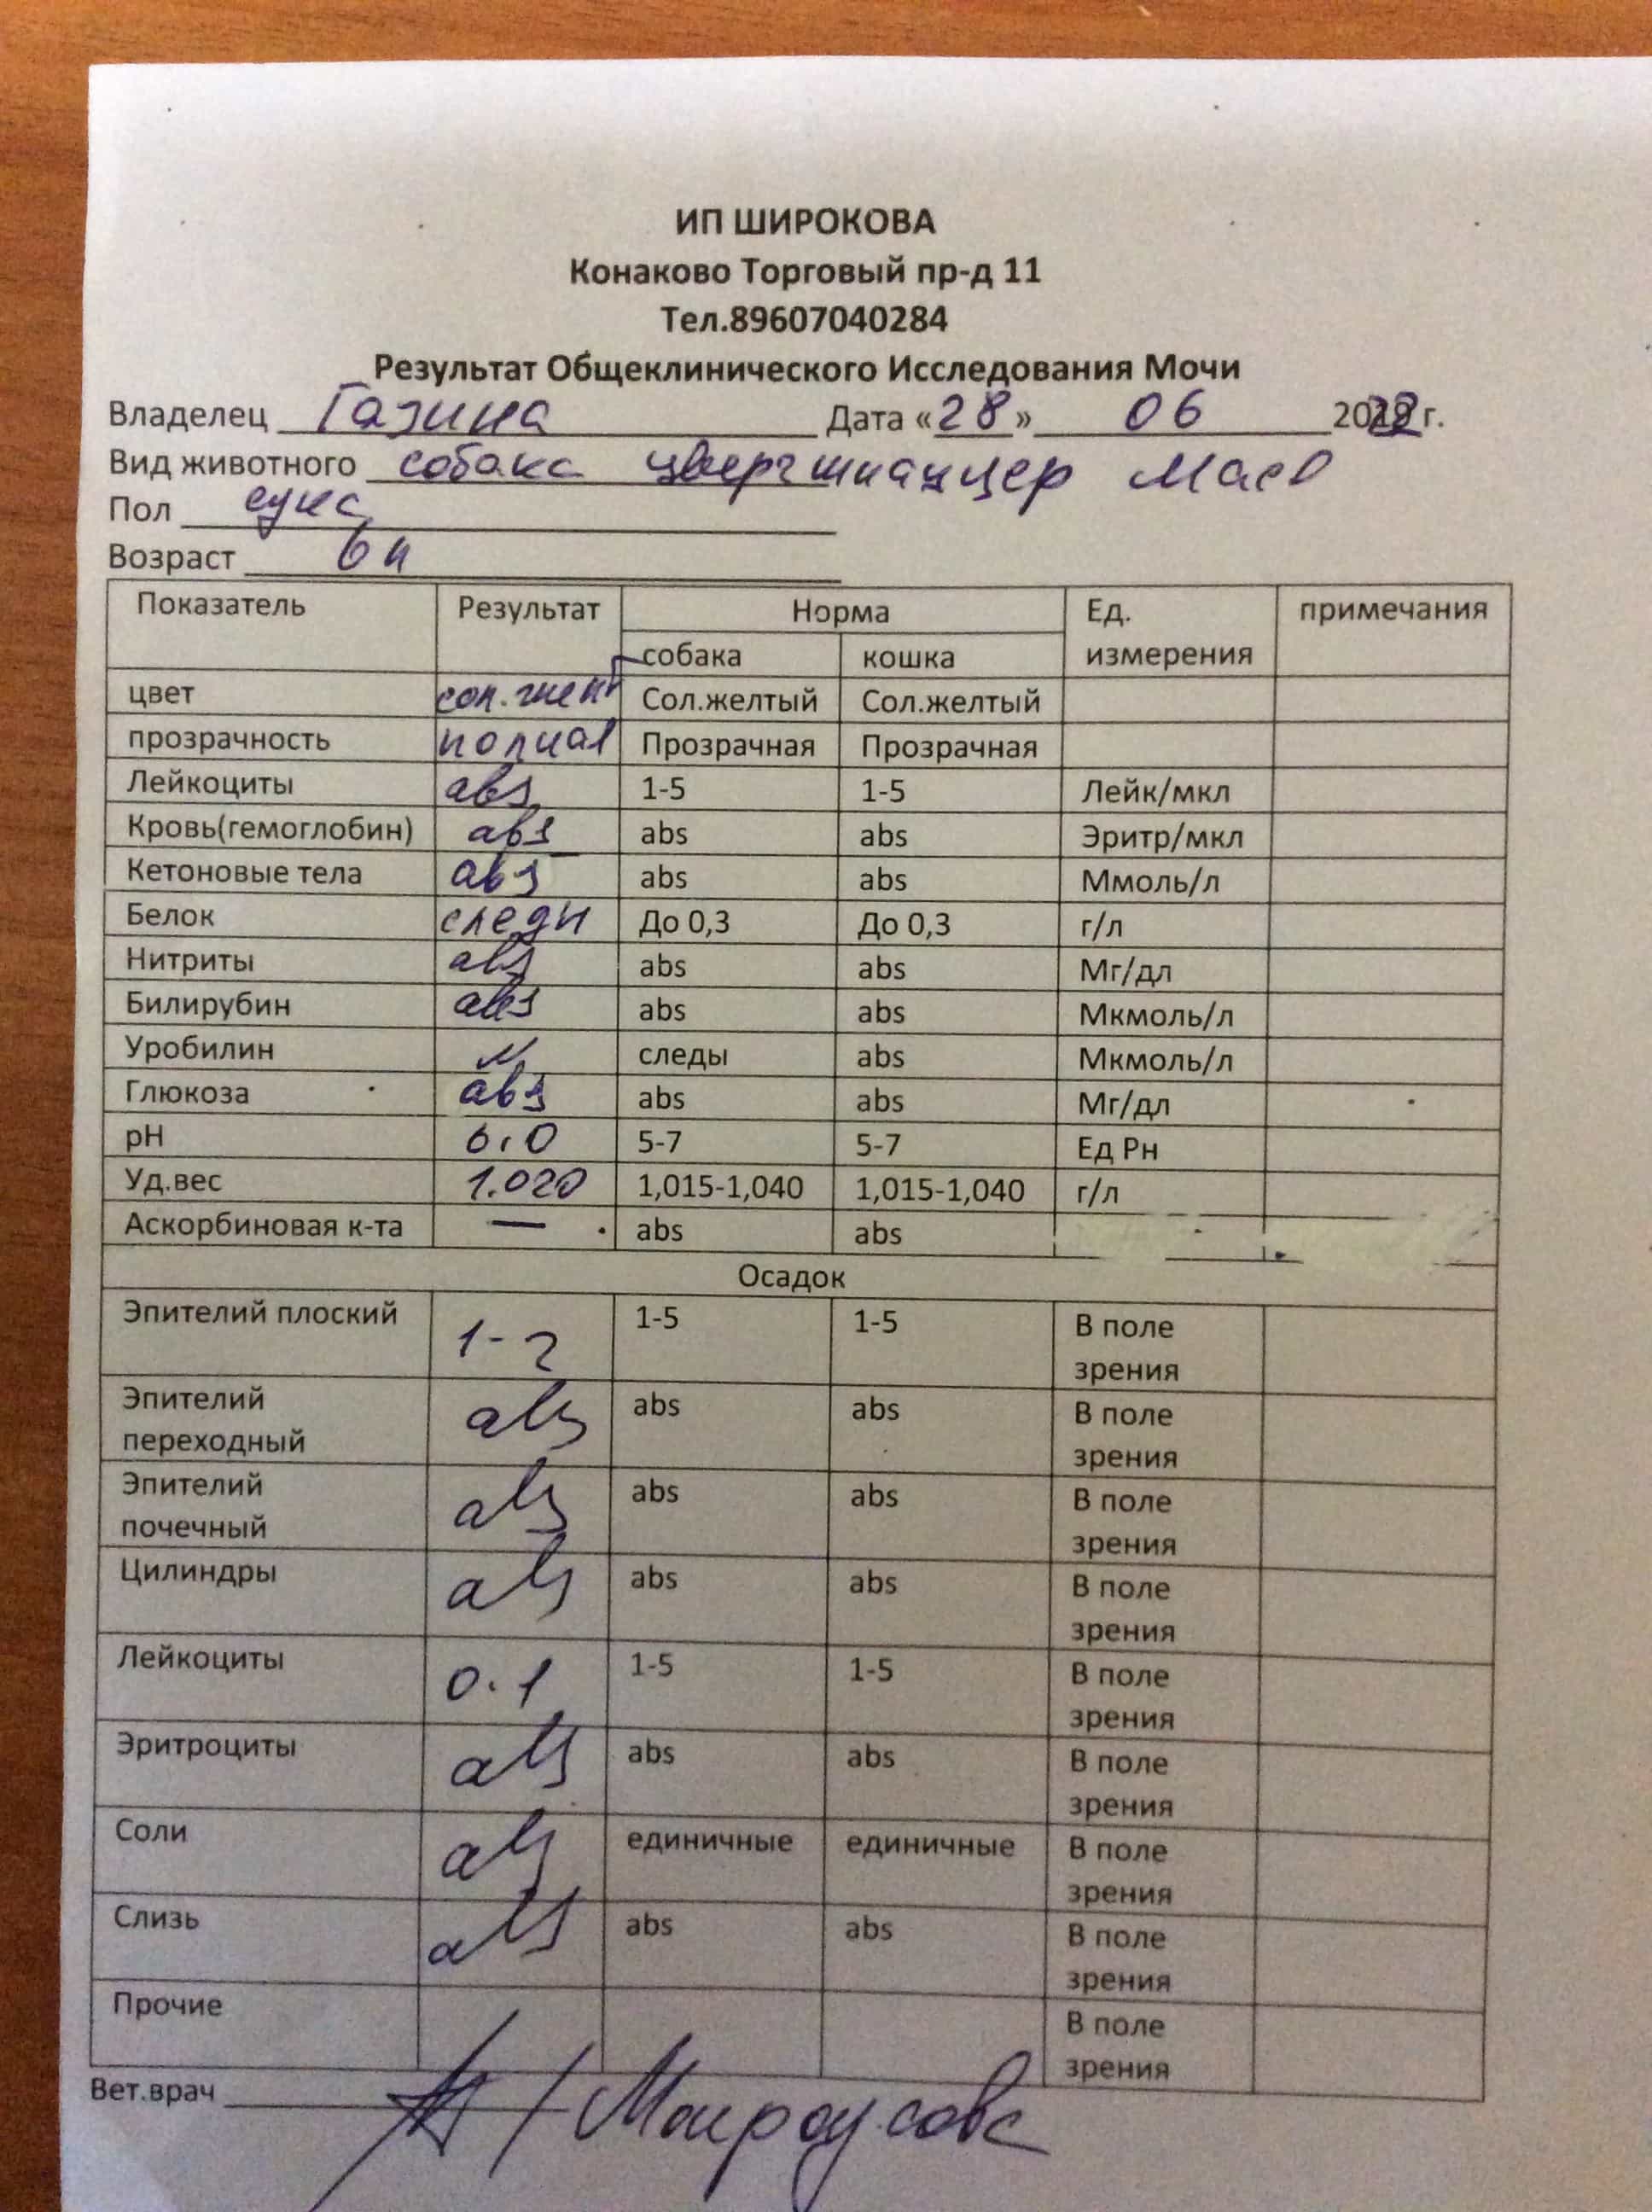 ИП ШИРОКОВА
Конаково Торговый пр-д 11
Тел.89607040284
Результат Общеклинического Исследования Мочи
Владелец Газина Дата «28» 06 2022 г.
Вид животного собака цвергшнауцер
Пол сука
Возраст 6
Показатель Результат Норма Ед. измерения примечания
собака кошка
цвет сол. желт Сол.желтый Сол.желтый
прозрачность полная Прозрачная Прозрачная
Лейкоциты abs 1-5 1-5 Лейк/мкл
Кровь(гемоглобин) abs abs abs Эритр/мкл
Кетоновые тела abs abs abs Ммоль/л
Белок следы До 0,3 До 0,3 г/л
Нитриты abs abs abs Мг/дл
Билирубин abs abs abs Мкмоль/л
Уробилин N следы abs Мкмоль/л
Глюкоза abs abs abs Мг/дл
pH 6,0 5-7 5-7 Ед Рн
Уд.вес 1.020 1,015-1,040 1,015-1,040 г/л
Аскорбиновая к-та — abs abs
Осадок
Эпителий плоский 1-2 1-5 1-5 В поле зрения
Эпителий переходный abs abs abs В поле зрения
Эпителий почечный abs abs abs В поле зрения
Цилиндры abs abs abs В поле зрения
Лейкоциты 0-1 1-5 1-5 В поле зрения
Эритроциты abs abs abs В поле зрения
Соли abs единичные единичные В поле зрения
Слизь abs abs abs В поле зрения
Прочие В поле зрения
Вет.врач